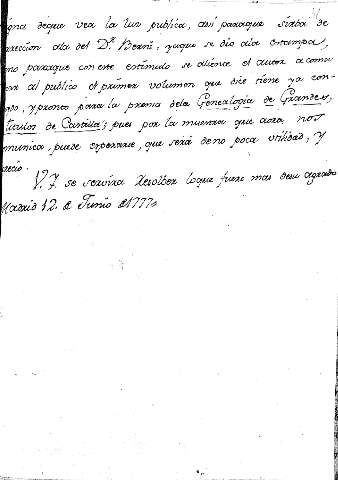 igna deque vea la luz publica, assi paraque sirba de
rreccion ala del D.r Berni, yaque se dio ala estampa,
mo paraque con este estimulo se aliente el autor a comu
car al publico el primer volumen que dice tiene ya con-
ido, y pronto para la prensa dela Genealogia de Grandes,
titulos de Castilla; pues por la muestra que aora nos
munica, puede esperarse, que será de no poca utilidad, y
recio.
V. I. se servira resolber loque fuere mas desu agrado
Madrid 12. de Junio de 1777